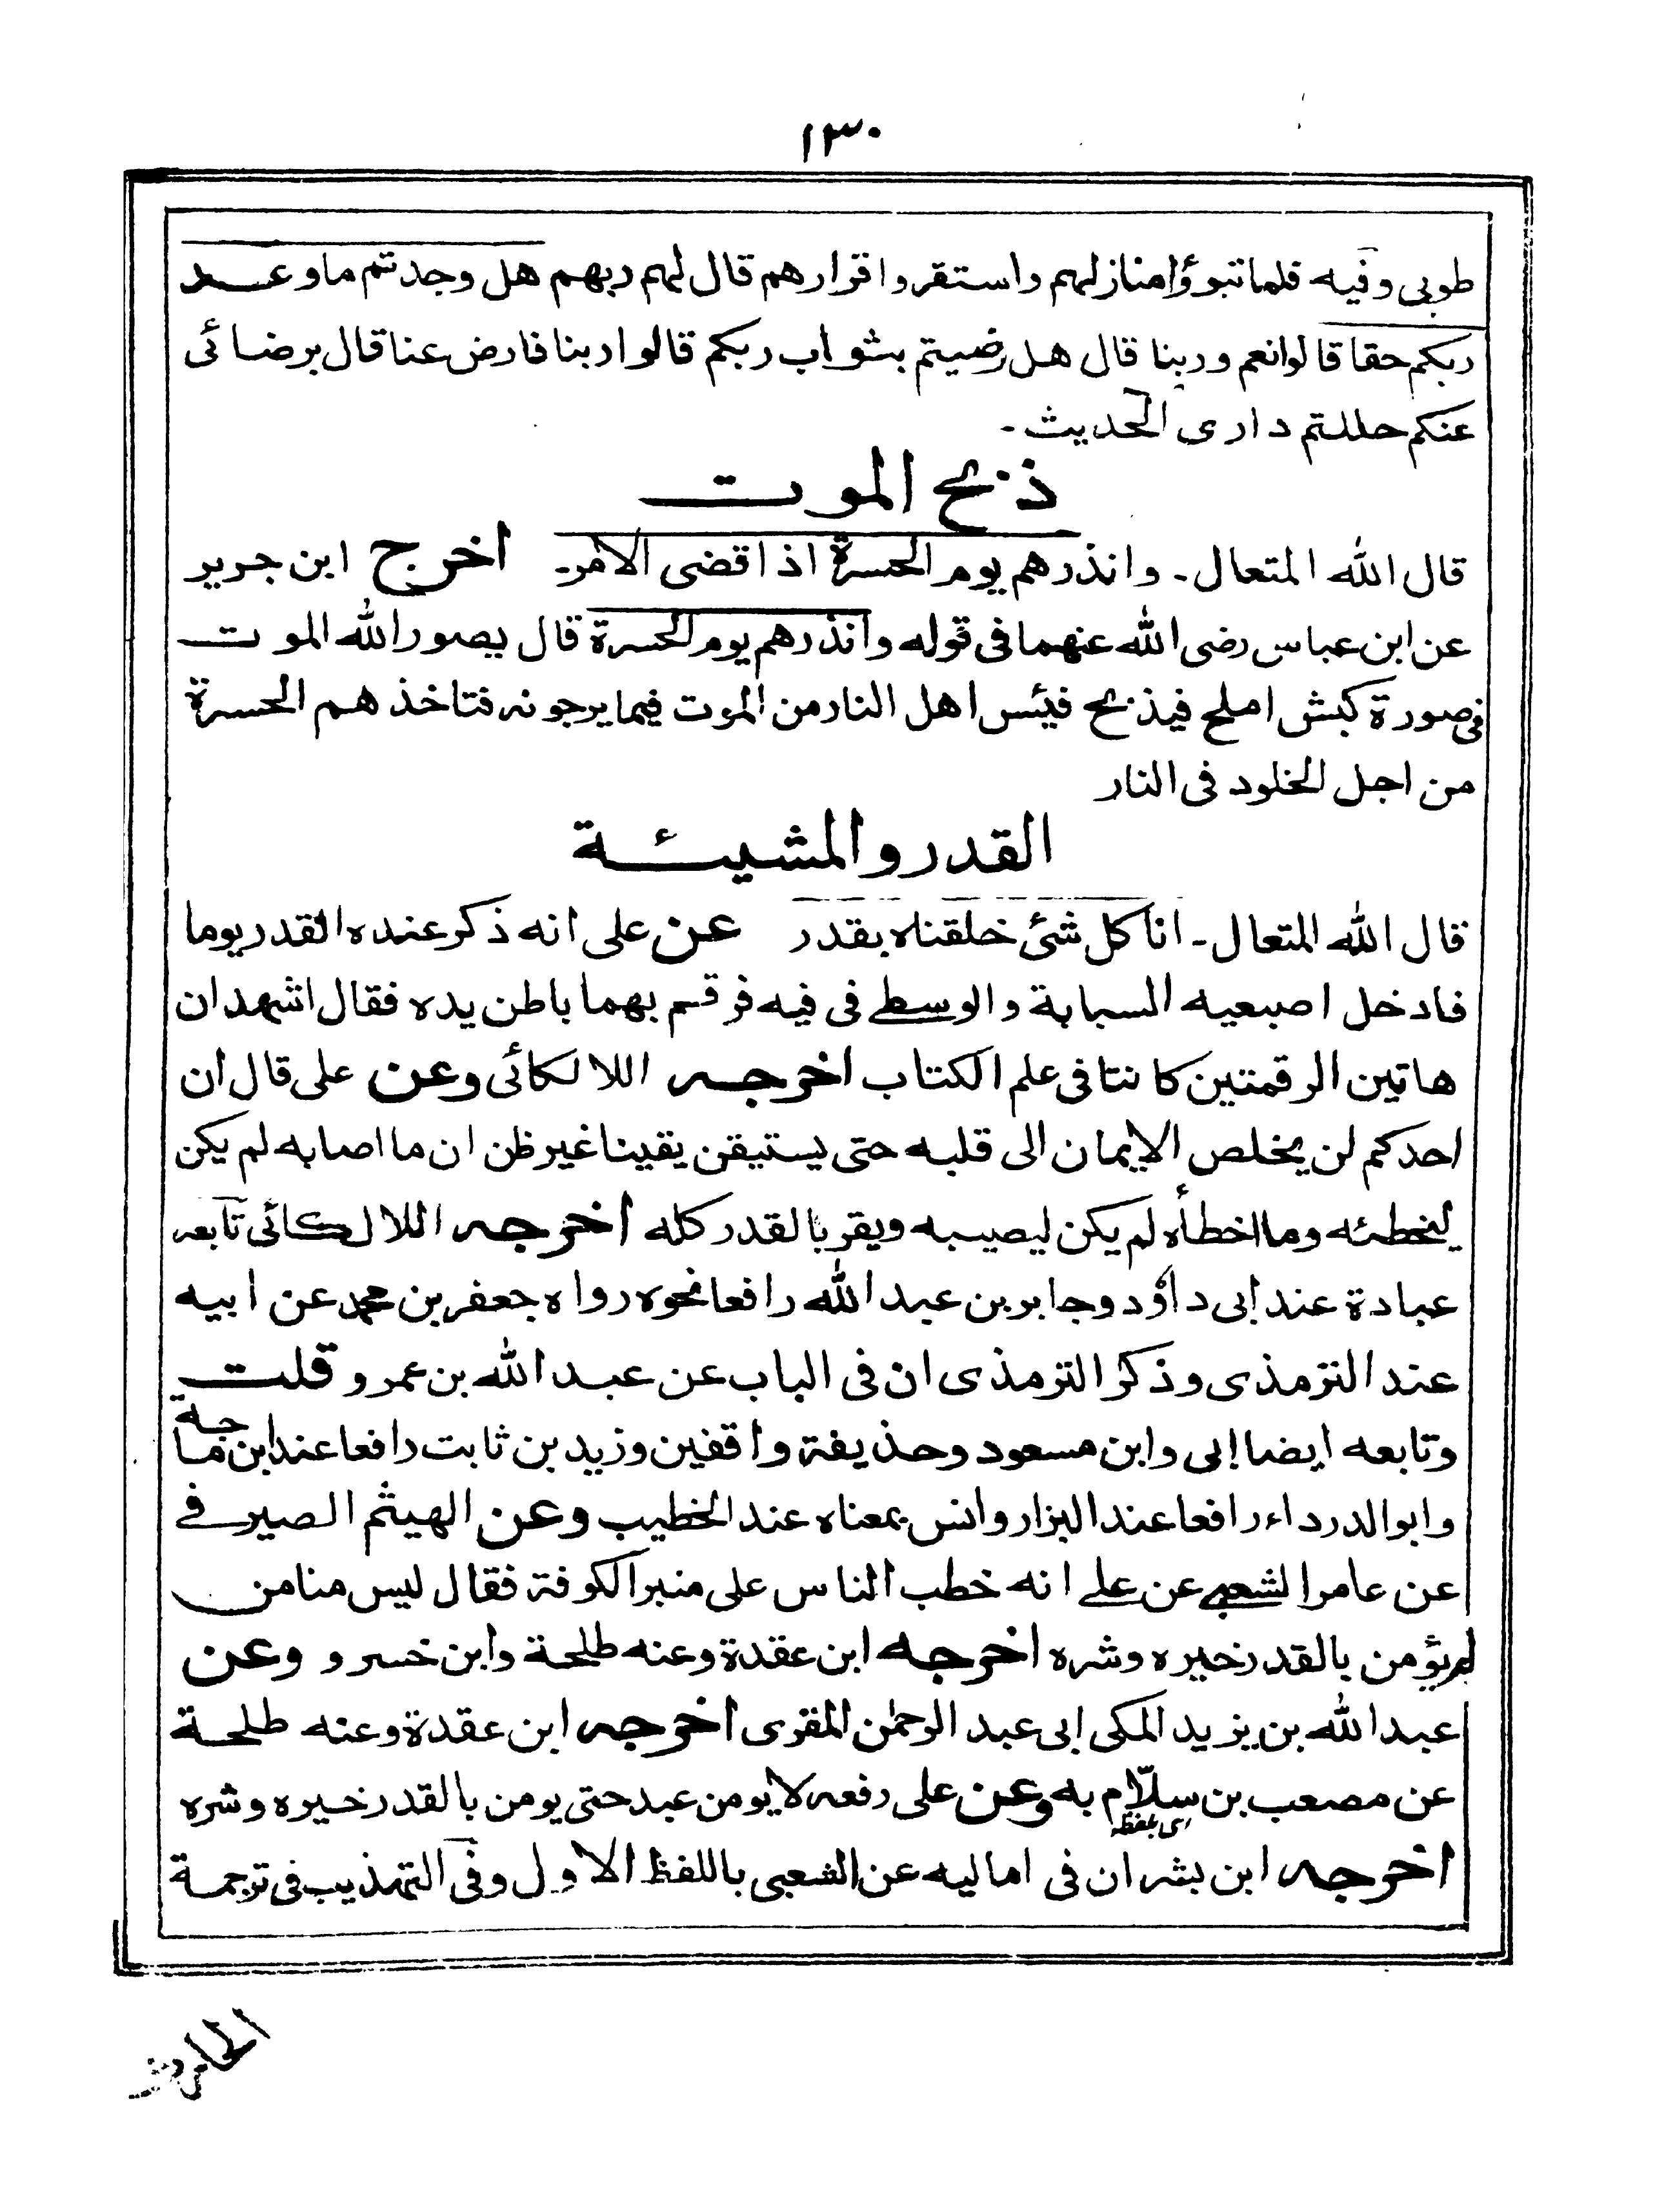 ١٣٠
طوبى وفيه فلما تبوؤا منازلهم واستقروا قرارهم قال لهم ربهم هل وجدتم ما وعد
ربكم حقا قالوا نعم وربنا قال هل رضيتم بثواب ربكم قالوا ربنا فارض عنا قال برضائى
عنكم حللتم دارى الحديث -
ذبح الموت
قال الله المتعال - وانذرهم يوم الحسرة اذا قضى الامر - اخرج ابن جرير
عن ابن عباس رضى الله عنهما فى قوله وانذرهم يوم الحسرة قال يصور الله الموت
فى صورة كبش املح فيذبح فيئس اهل النار من الموت فيما يرجونه فتاخذ هم الحسرة
من اجل الخلود فى النار
القدر والمشيئة
قال الله المتعال - انا كل شئ خلقناه بقدر عن على انه ذكر عنده القدر يوما
فادخل اصبعيه السبابة والوسطى فى فيه فرقم بهما باطن يده فقال اشهد ان
هاتين الرقمتين كانتا فى علم الكتاب اخرجه اللالكائى وعن على قال ان
احدكم لن يخلص الايمان الى قلبه حتى يستيقن يقينا غير ظن ان ما اصابه لم يكن
ليخطئه وما اخطأه لم يكن ليصيبه ويقر بالقدر كله اخرجه اللالكائى تابعه
عبادة عند ابى داؤد وجابر بن عبد الله رافعا نحوه رواه جعفر بن محمد عن ابيه
عند الترمذى وذكر الترمذى ان فى الباب عن عبد الله بن عمرو قلت
وتابعه ايضا ابى وابن مسعود وحذيفة واقفين وزيد بن ثابت رافعا عند ابن ماجة
وابو الدرداء رافعا عند البزار وانس بمعناه عند الخطيب وعن الهيثم الصيرفى
عن عامر الشعبى عن على انه خطب الناس على منبر الكوفة فقال ليس منا من
لم يؤمن بالقدر خيره وشره اخرجه ابن عقدة وعنه طلحة وابن خسرو وعن
عبد الله بن يزيد المكى ابى عبد الرحمن المقرى اخرجه ابن عقدة وعنه طلحة
عن مصعب بن سلّام به وعن على رفعه لا يومن عبد حتى يومن بالقدر خيره وشره
اى بلفظه
اخرجه ابن بشران فى اماليه عن الشعبى باللفظ الاول وفى التهذيب فى ترجمة
الحارث